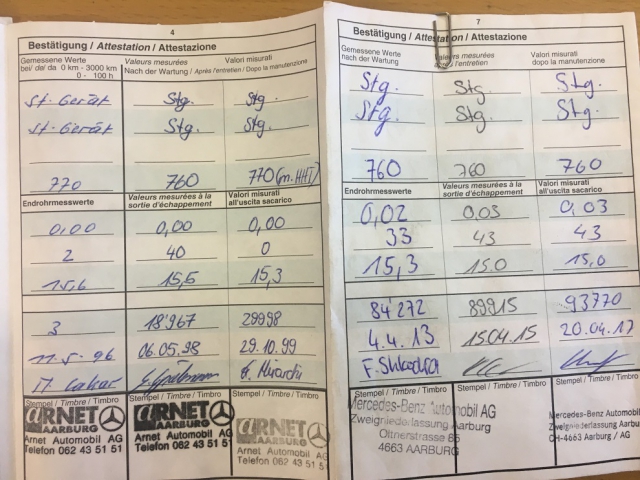 4
Bestätigung / Attestation / Attestazione
Gemessene Werte
bei/ de/ da 0 km - 3000 km
0 - 100 h
Valeurs mesurées/ Valori misurati
Nach der Wartung / Après l'entretien / Dopo la manutenzione
St. Gerät Stg. Stg.
St. Gerät Stg. Stg.
770 760 770
Endrohrmesswerte
Valeurs mesurées à la
sortie d'échappement
Valori misurati
all'uscita sacarico
0,00 0,00 0,00
2 40 0
15,6 15,5 15,3
3 18'967 29998
11.5.96 06.05.98 29.10.99
Stempel / Timbre / Timbro Stempel / Timbre / Timbro Stempel / Timbre / Timbro
@RNET @RNET @RNET
AARBURG AARBURG AARBURG
Arnet Automobil AG Arnet Automobil AG Arnet Automobil AG
Telefon 062 43 51 51 Telefon 062 43 51 5 Telefon 062 43 51 51
7
Bestätigung / Attestation / Attestazione
Gemessene Werte
nach der Wartung
Valeurs mesurées
après l'entretien
Valori misurati
dopo la manutenzione
Stg. Stg. Stg.
Stg. Stg. Stg.
760 760 760
Endrohrmesswerte
Valeurs mesurées à la
sortie d'échappement
Valori misurati
all'uscita sacarico
0,02 0,03 0,03
33 43 43
15,3 15,0 15,0
84'272 89915 93770
4.4.13 15.04.15 20.04.17
Stempel / Timbre / Timbro Stempel / Timbre / Timbro Stempel / Timbre / Timbro
Mercedes-Benz Automobil AG
Zweigniederlassung Aarburg
Oltnerstrasse 85
4663 AARBURG
Mercedes-Benz Automobil
Zweigniederlassung Aarburg
CH-4663 Aarburg / AG